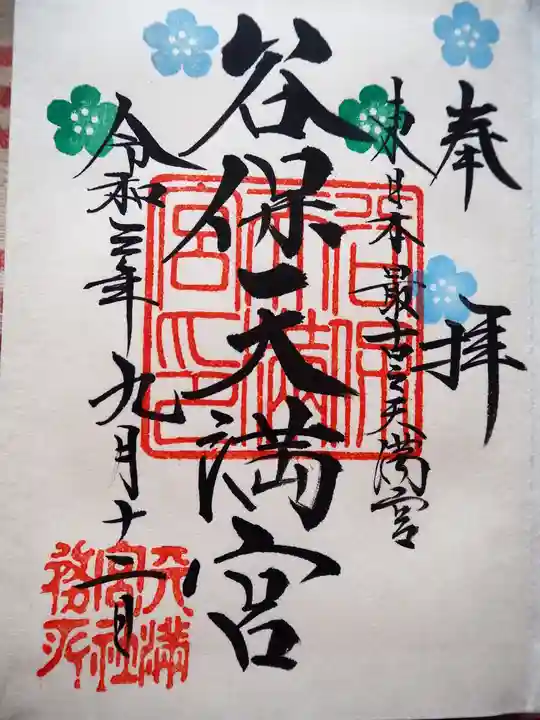 奉拝
東日本最古之天満宮
谷保天満宮
令和三年九月十二日
谷保天満宮印
天満宮社務所